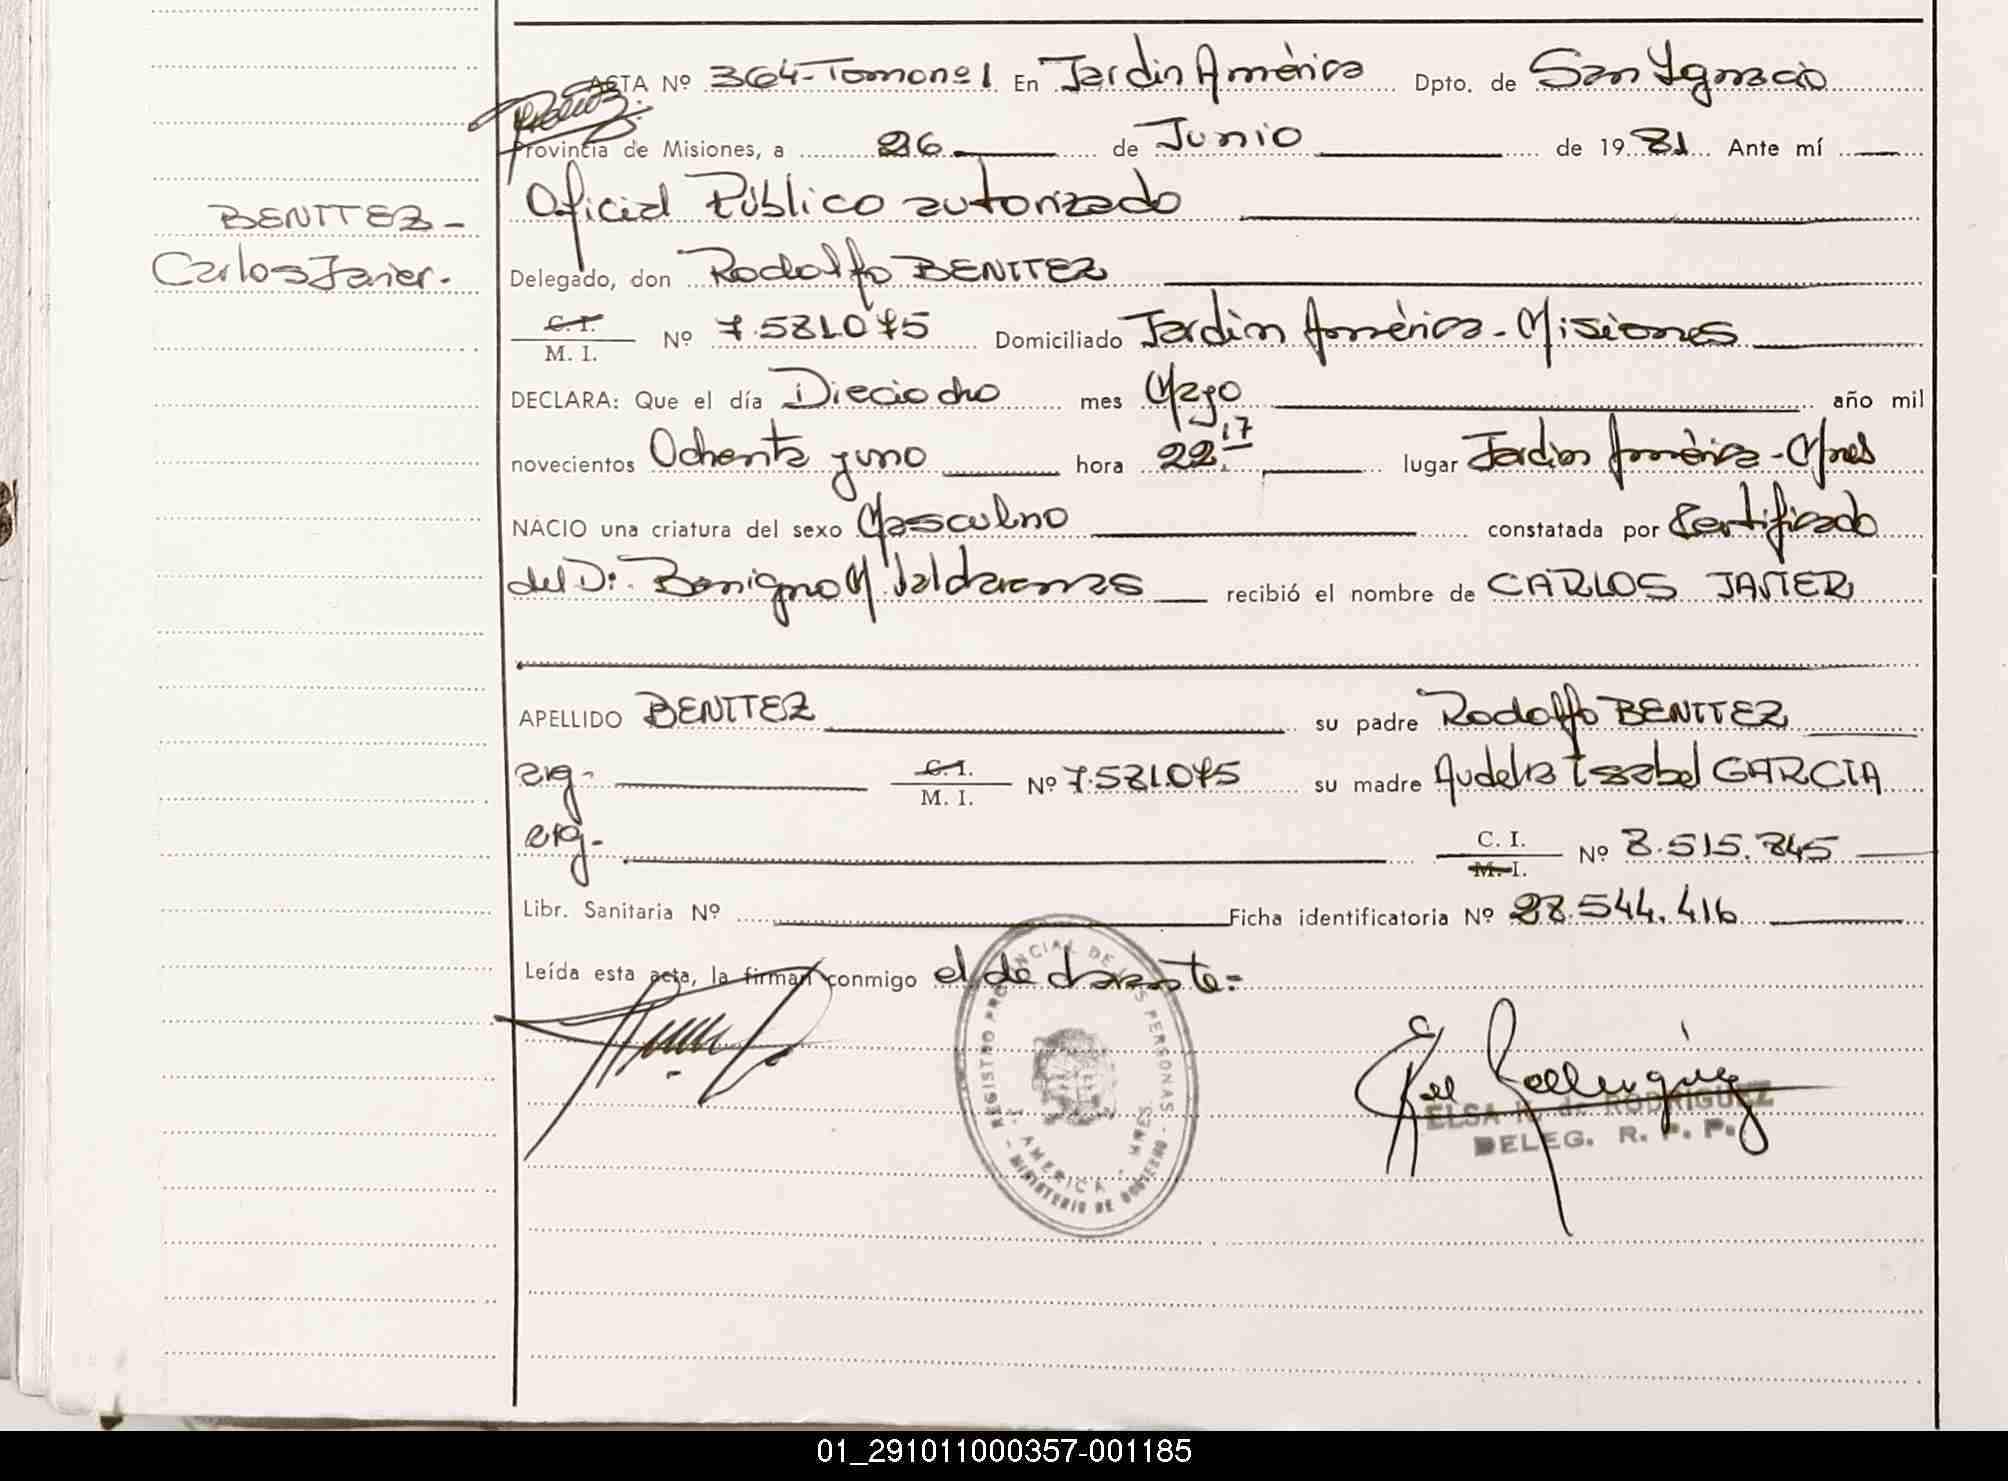 ACTA Nº 364-Tomo nº 1 En Jardin América Dpto. de San Ygnacio
Provincia de Misiones, a 26 de Junio de 1981 Ante mí
Oficial Público autorizado
BENITEZ-
Carlos Javier.
Delegado, don Rodolfo BENITEZ
C.I. M. I. Nº 7.581.075 Domiciliado Jardin América-Misiones
DECLARA: Que el día Dieciocho mes Mayo año mil
novecientos Ochenta y uno hora 22.17 lugar Jardin América-Mnes
NACIO una criatura del sexo Masculino constatada por Certificado
del Dr. Benigno M. recibió el nombre de CARLOS JAVIER
APELLIDO BENITEZ su padre Rodolfo BENITEZ
arg- C.I. M. I. Nº 7.581.075 su madre Audelia Isabel GARCIA
arg- C. I. M. I. Nº 8.515.845
Libr. Sanitaria Nº Ficha identificatoria Nº 28.544.416
Leída esta acta, la firman conmigo el declarante=
REGISTRO PROVINCIAL DE LAS PERSONAS - MINISTERIO DE GOBIERNO -
J. AMERICA - MNES.
ELSA H. de RODRIGUEZ
DELEG. R. P. P.
01_291011000357-001185